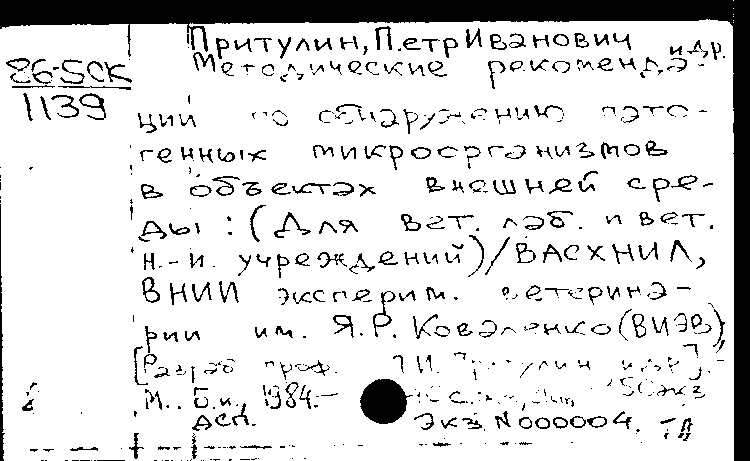 Притулин, Петр Иванович и др.
86-5СК Методические рекоменда-
1139
ций по обнаружению пато-
генных микроорганизмов
в объектах внешней сре-
ды : (Для вет. лаб. и вет.
н.-и. учреждений) / ВАСХНИЛ,
ВНИИ эксперим. ветерина-
рии им. Я.Р. Коваленко (ВИЭВ);
[Разраб проф. П.И. Притулин и др].-
М.: Б.и., 1984.- 50 экз
ДСП. Экз N000004.